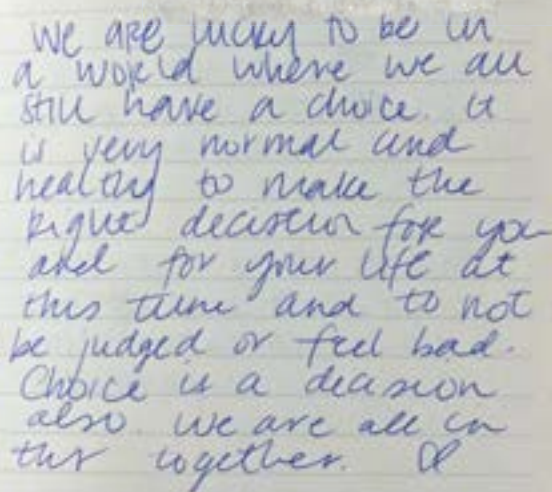 We are lucky to be in
a world where we all
still have a choice. It
is very normal and
healthy to make the
right decision for you
and for your life at
this time and to not
be judged or feel bad.
Choice is a decision
also. We are all in
this together.